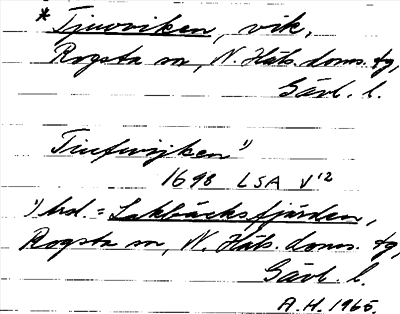 *Tjuvviken, vik,
Rogsta sn, N. Häls. doms. tg,
Gävl. l.
Tiufwijken 1)
1698 LSA V 12
1) brd. = Lakbäcksfjärden,
Rogsta sn, N. Häls. doms. tg,
Gävl. l.
A.H. 1965.